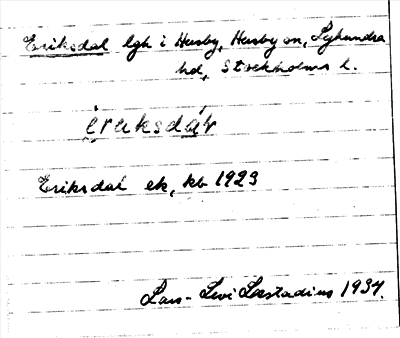 Eriksdal lgh i Husby, Husby sn, Lyhundra
hd, Stockholms l.
Eriksdal ek, kb 1923
Lars-Levi Læstadius 1937.